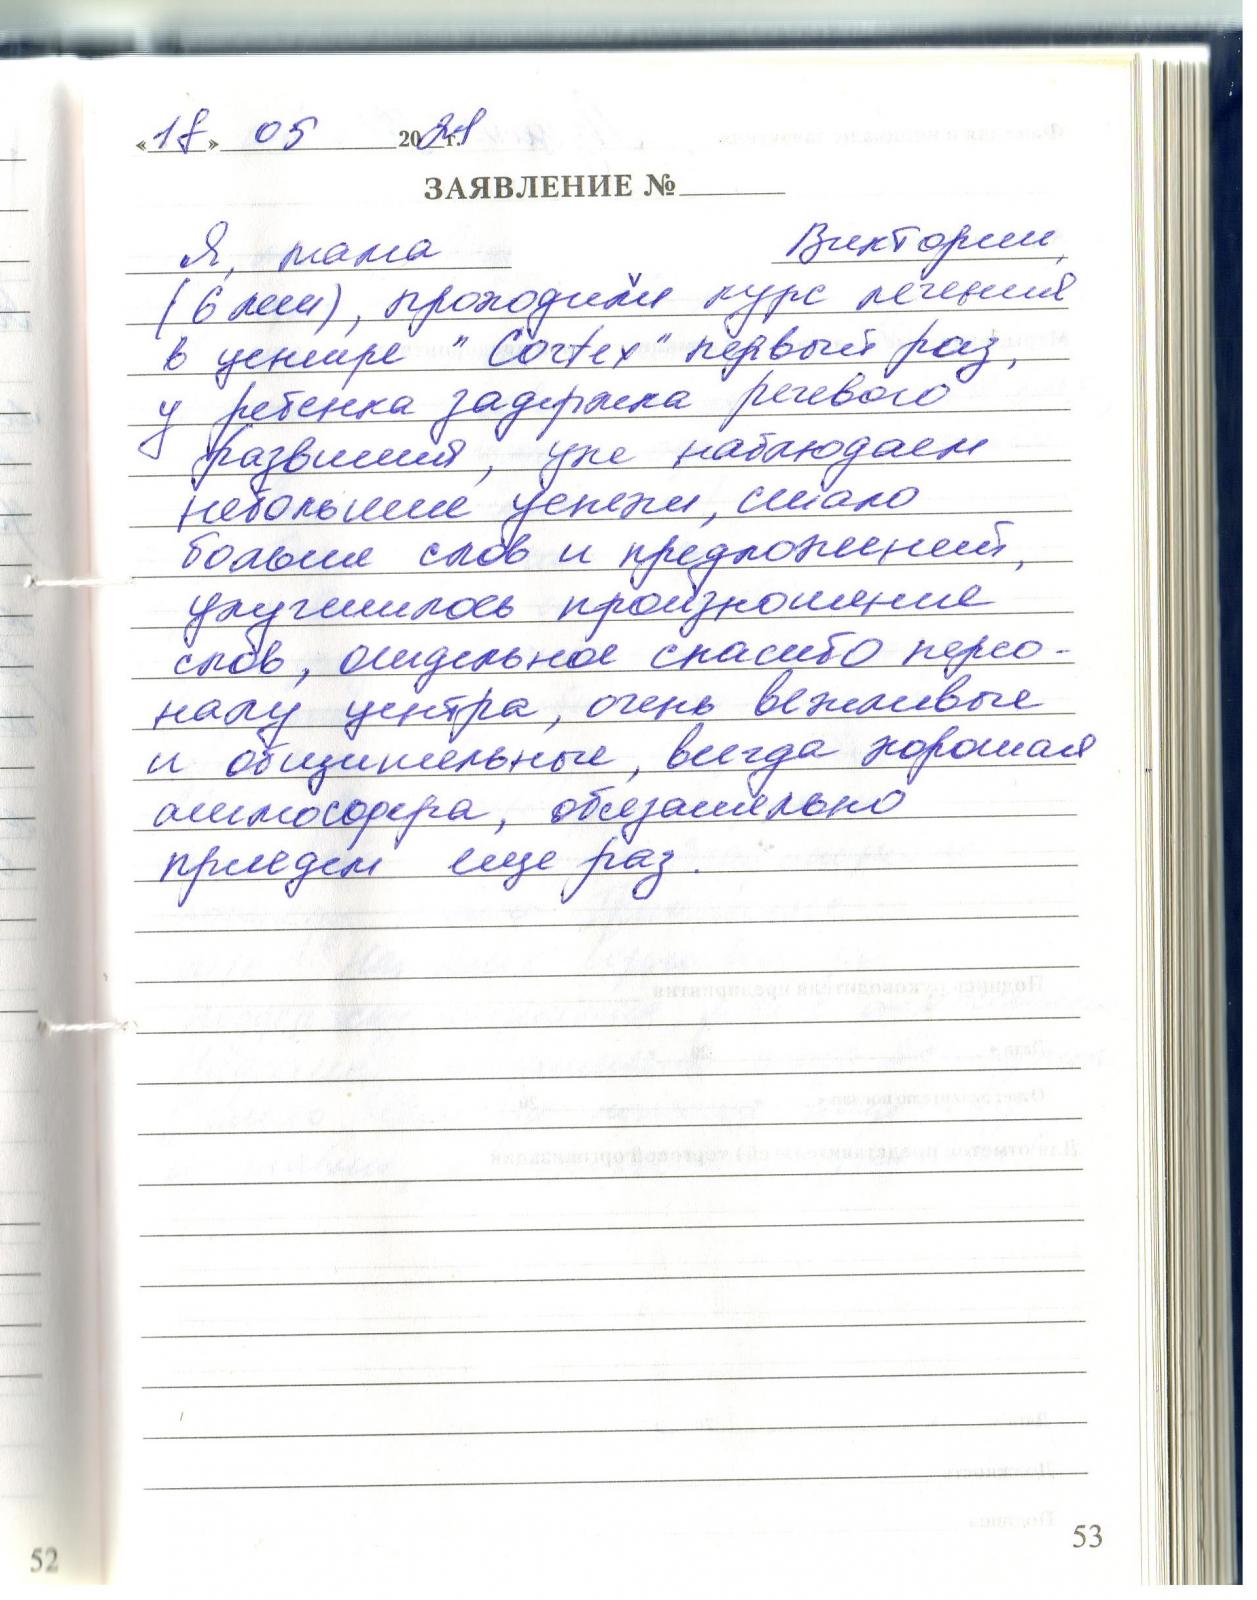 «17» 05 2021 г.
ЗАЯВЛЕНИЕ №
Я, мама Виктории,
(6 лет), проходили курс лечения
в центре "Cortex" первый раз,
у ребенка задержка речевого
развития, уже наблюдаем
небольшие успехи, стало
больше слов и предложений,
улучшилось произношение
слов, отдельное спасибо персо-
налу центра, очень вежливые
и общительные, всегда хорошая
атмосфера, обязательно
приедем еще раз.
52
53